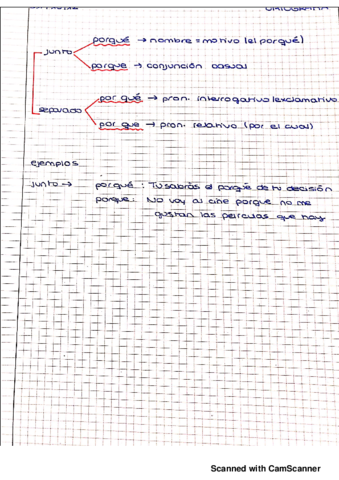 ORTOGRAFIA
porqué → nombre = motivo (el porqué)
junto
porque → conjunción casual
por qué → pron. interrogativo/exclamativo
separado
por que → pron. relativo (por el cual)
ejemplos
junto → porqué: Tu sabrás el porqué de tu decisión
porque: No voy al cine porque no me
gustan las películas que hay
Scanned with CamScanner